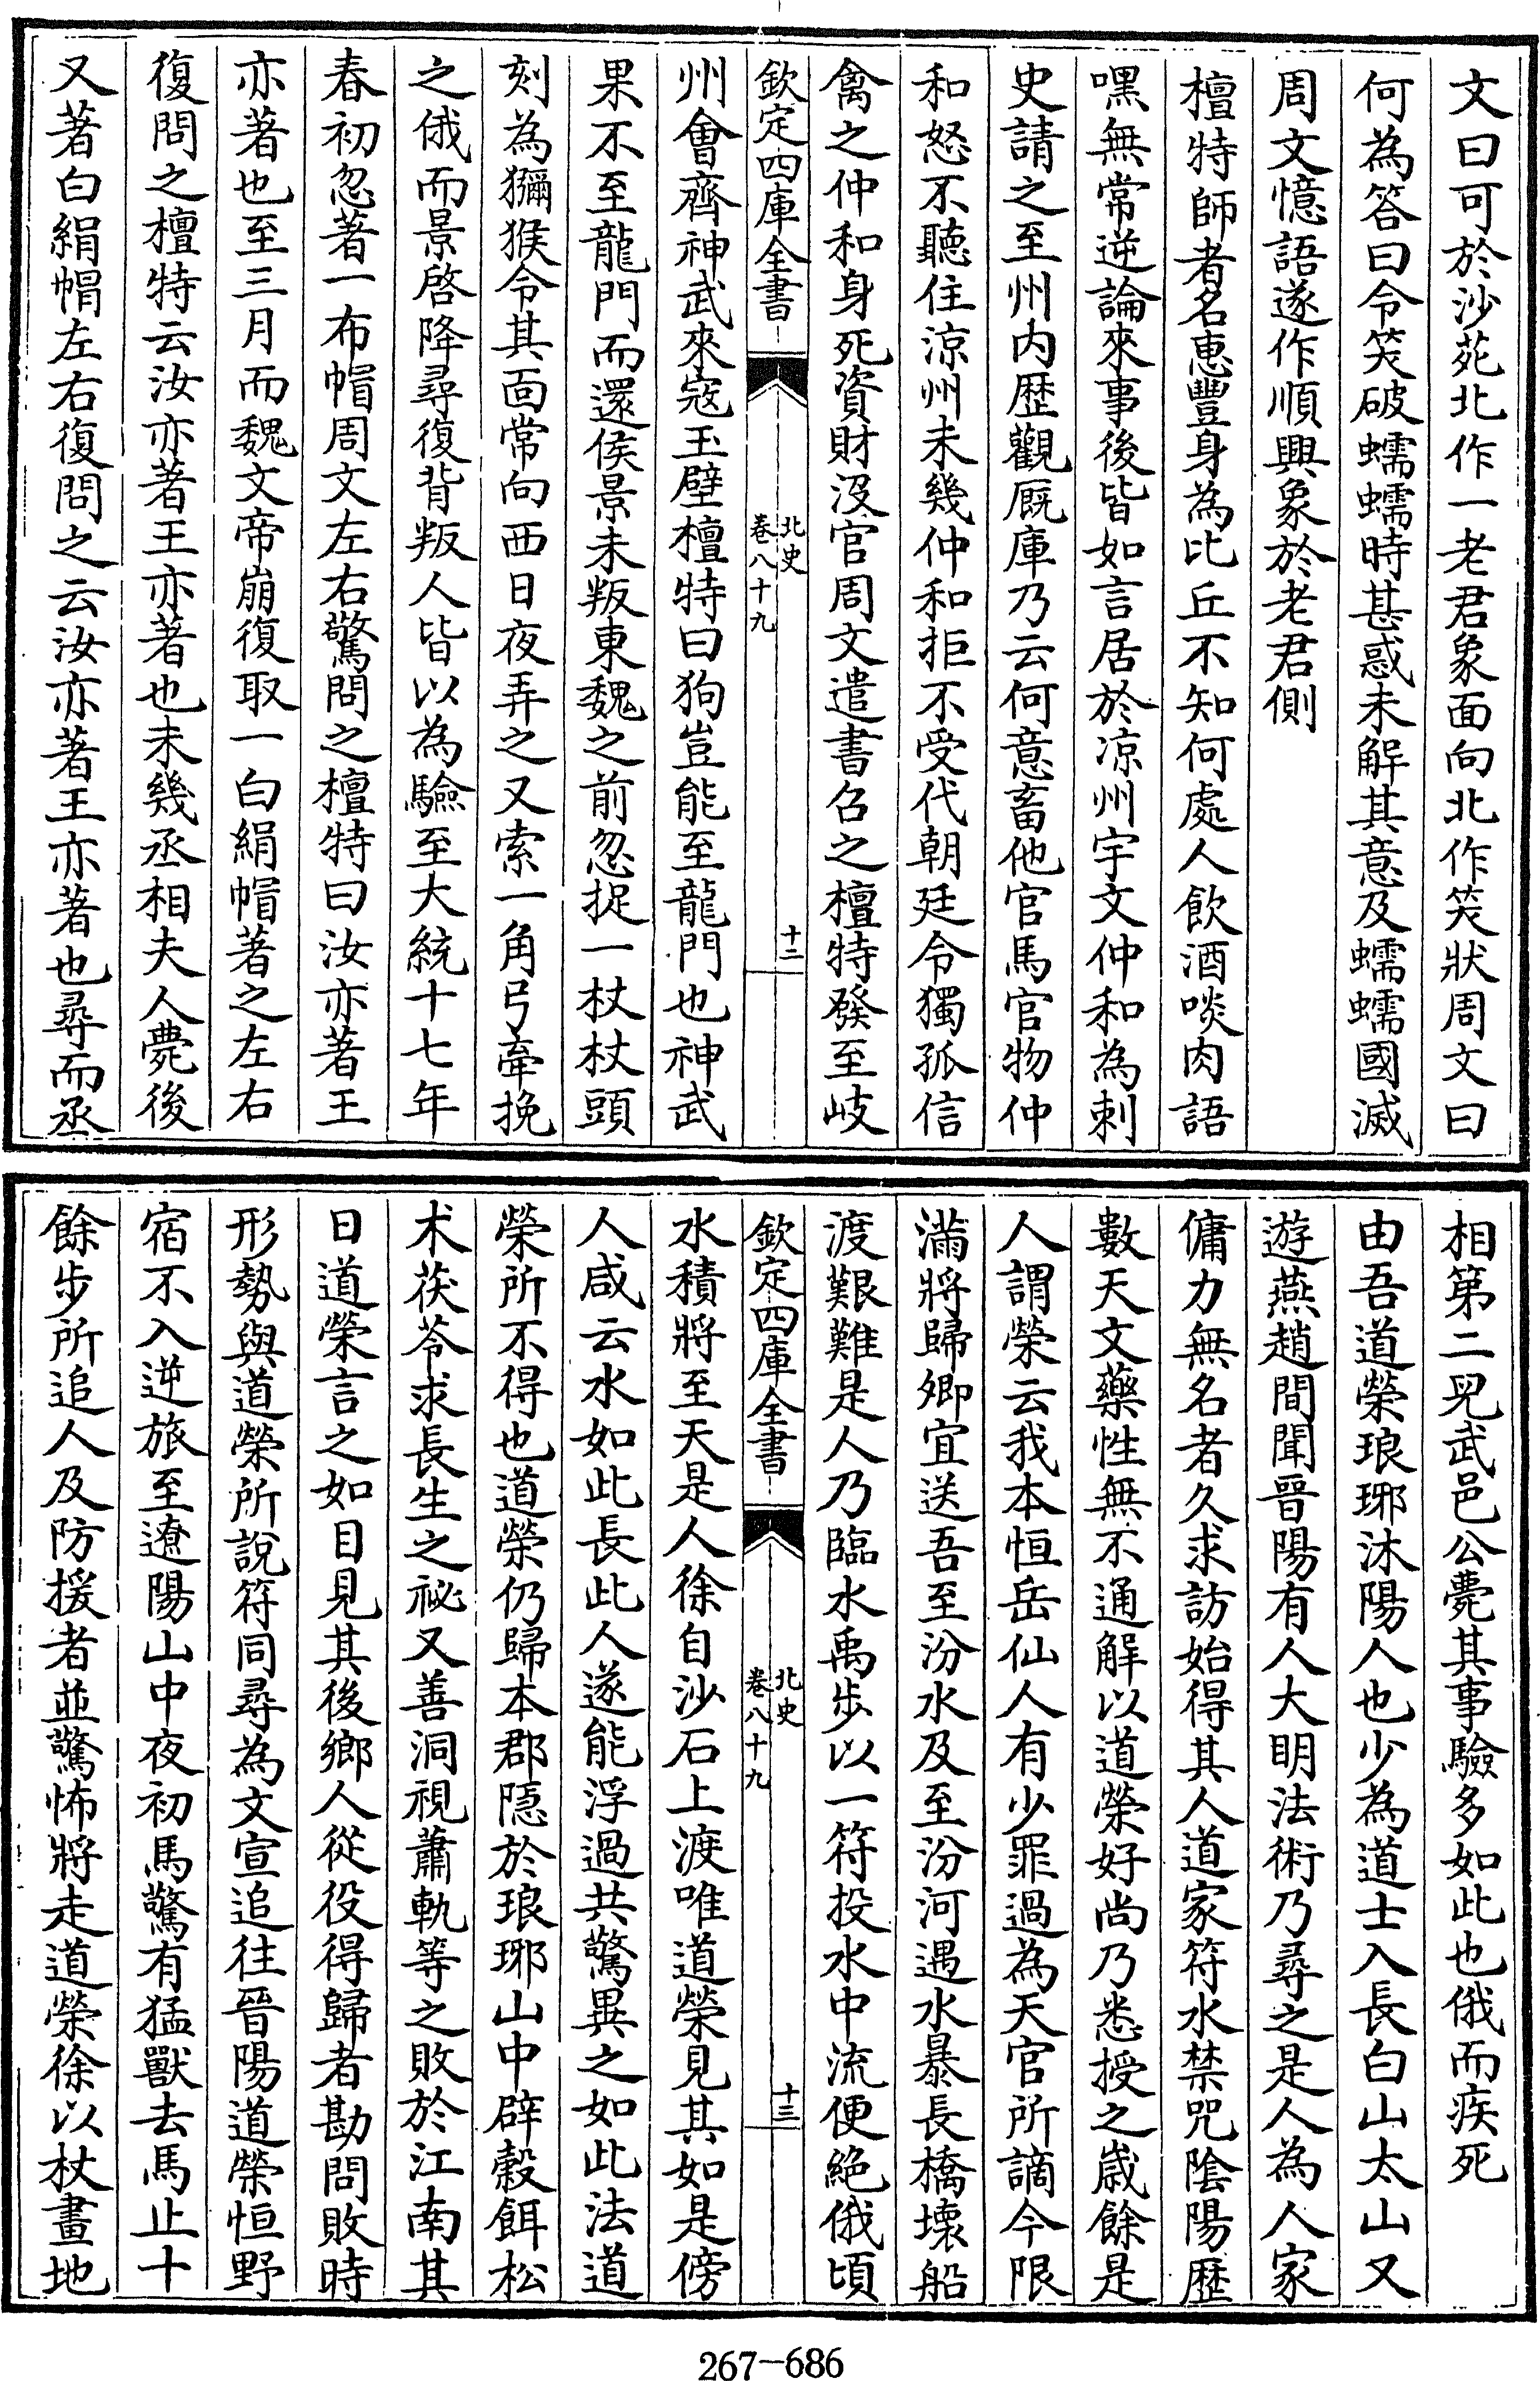 文曰可於沙苑北作一老君象面向北作笑狀周文曰
何為答曰令笑破蠕蠕時甚惑未解其意及蠕蠕國滅
周文憶語遂作順興象於老君側
檀特師者名惠豐身為比丘不知何處人飲酒啖肉語
嘿無常逆論來事後皆如言居於凉州宇文仲和為刺
史請之至州内歴觀廐庫乃云何意畜他官馬官物仲
和怒不聽住涼州未幾仲和拒不受代朝廷令獨孤信
禽之仲和身死資財沒官周文遣書召之檀特發至岐
欽定四庫全書
北史
卷八十九
十二
州會齊神武來寇玉壁檀特曰狗豈能至龍門也神武
果不至龍門而還侯景未叛東魏之前忽捉一杖杖頭
刻為獼猴令其面常向西日夜弄之又索一角弓牽挽
之俄而景啓降尋復背叛人皆以為驗至大統十七年
春初忽著一布帽周文左右驚問之檀特曰汝亦著王
亦著也至三月而魏文帝崩復取一白絹帽著之左右
復問之檀特云汝亦著王亦著也未幾丞相夫人薨後
又著白絹帽左右復問之云汝亦著王亦著也尋而丞
相第二兒武邑公薨其事驗多如此也俄而疾死
由吾道榮琅琊沐陽人也少為道士入長白山太山又
遊燕趙間聞晉陽有人大明法術乃尋之是人為人家
傭力無名者久求訪始得其人道家符水禁咒陰陽歴
數天文藥性無不通解以道榮好尚乃悉授之歲餘是
人謂榮云我本恒岳仙人有少罪過為天官所謫今限
滿將歸卿宜送吾至汾水及至汾河遇水暴長橋壞船
渡艱難是人乃臨水禹步以一符投水中流便絶俄頃
欽定四庫全書
北史
卷八十九
十三
水積將至天是人徐自沙石上渡唯道榮見其如是傍
人咸云水如此長此人遂能浮過共驚異之如此法道
榮所不得也道榮仍歸本郡隱於琅琊山中辟穀餌松
术茯苓求長生之祕又善洞視蕭軌等之敗於江南其
日道榮言之如目見其後鄉人從役得歸者勘問敗時
形勢與道榮所說符同尋為文宣追往晉陽道榮恒野
宿不入逆旅至遼陽山中夜初馬驚有猛獸去馬止十
餘步所追人及防援者並驚怖將走道榮徐以杖畫地
267-686